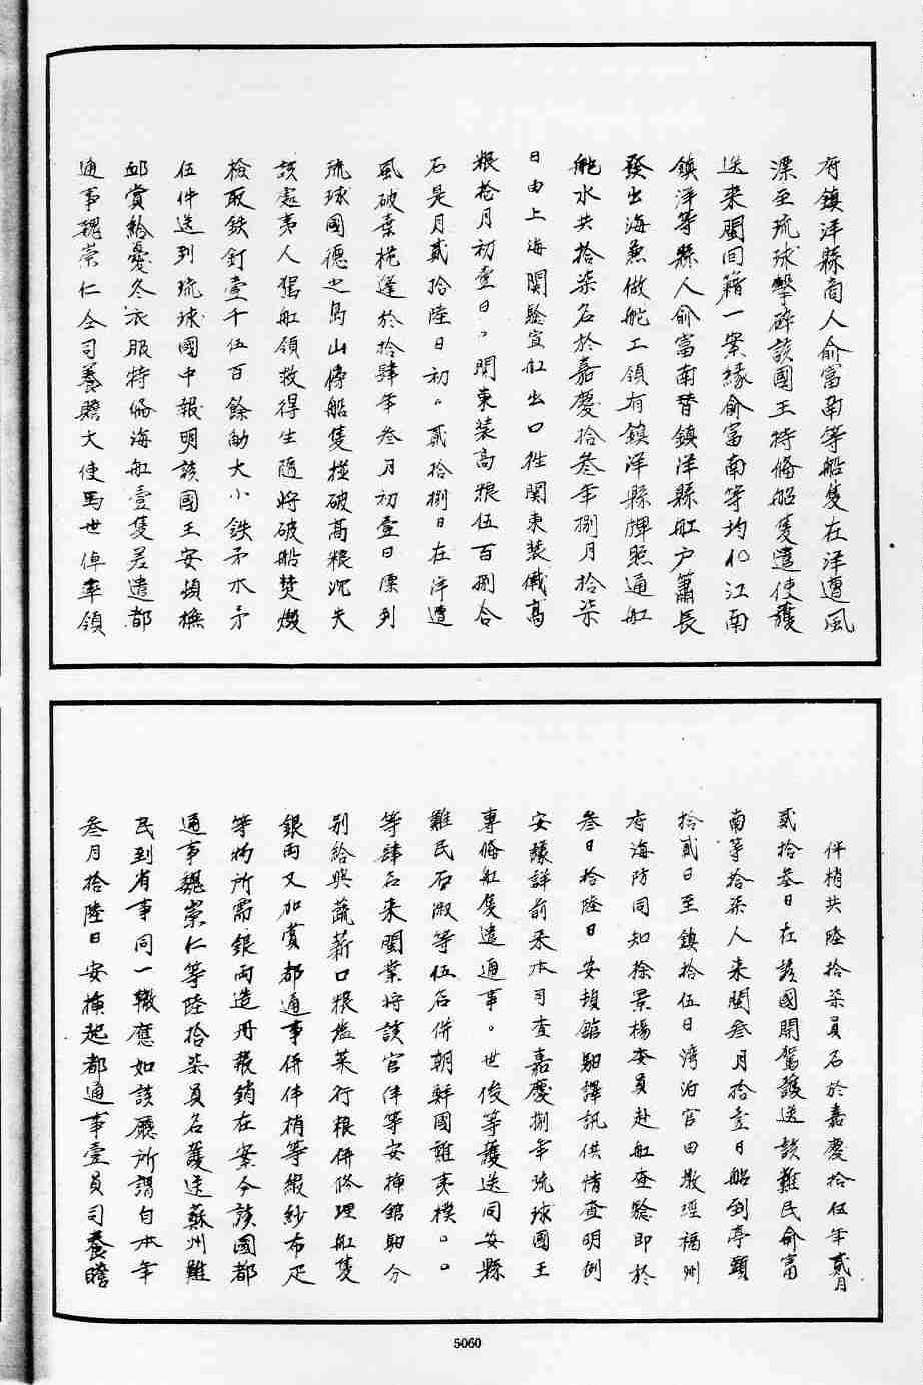 府鎮洋縣商人俞富南等船隻在洋遭風
漂至琉球擊碎該國王特偹船隻遣使護
送来閩回籍一案緣俞富南等均係江南
鎮洋等縣人俞富南替鎮洋縣舡户蕭長
發出海兼做舵工領有鎮洋縣牌照通舡
舵水共拾柒名於嘉慶拾叁年捌月拾柒
日由上海関驗宜舡出口徃関東装儎高
粮拾月初壹日。関東装高粮伍百捌合
石是月貳拾陸日初。貳拾捌日在洋遭
風破棄桅篷於拾肆年叁月初壹日漂到
琉球國德之島山傍船隻撞破高粮沉失
該處夷人棍舡領救得生隨將破船焚燬
檢取鉄釘壹千伍百餘觔大小鉄矛木矛
伍件送到琉球國中報明該國王安頓撫
邮賞給憂冬衣服特偹海舡壹隻差遣都
通事魏崇仁仝司養贍大使馬世倬率領
伴梢共陸拾柒員名於嘉慶拾伍年貳月
貳拾叁日在該國開駕護送該難民俞富
南等拾柒人来閩叁月拾壹日船到亭頭
拾貳日至鎮拾伍日湾泊官田敢經福州
府海防同知徐景楊委員赴舡查驗即於
叁日拾陸日安頓舘馹譯訊供情查明例
安讓詳前来本司查嘉慶捌年琉球國王
專偹舡隻遣通事。世俊等護送同安縣
難民石淑等伍名併朝鮮國誰夷樸。。
等肆名来閩業將該官伴等安揷舘馹分
别給與蔬薪口粮塩菜行粮併修理舡隻
銀両又加賞都通事併伴梢等緞紗布疋
等物所需銀両造册報銷在案今該國都
通事魏崇仁等陸拾柒員名護送蘇州難
民到省事同一轍應如該廳所謂自本年
叁月拾陸日安揷起都通事壹員司養贍
5060